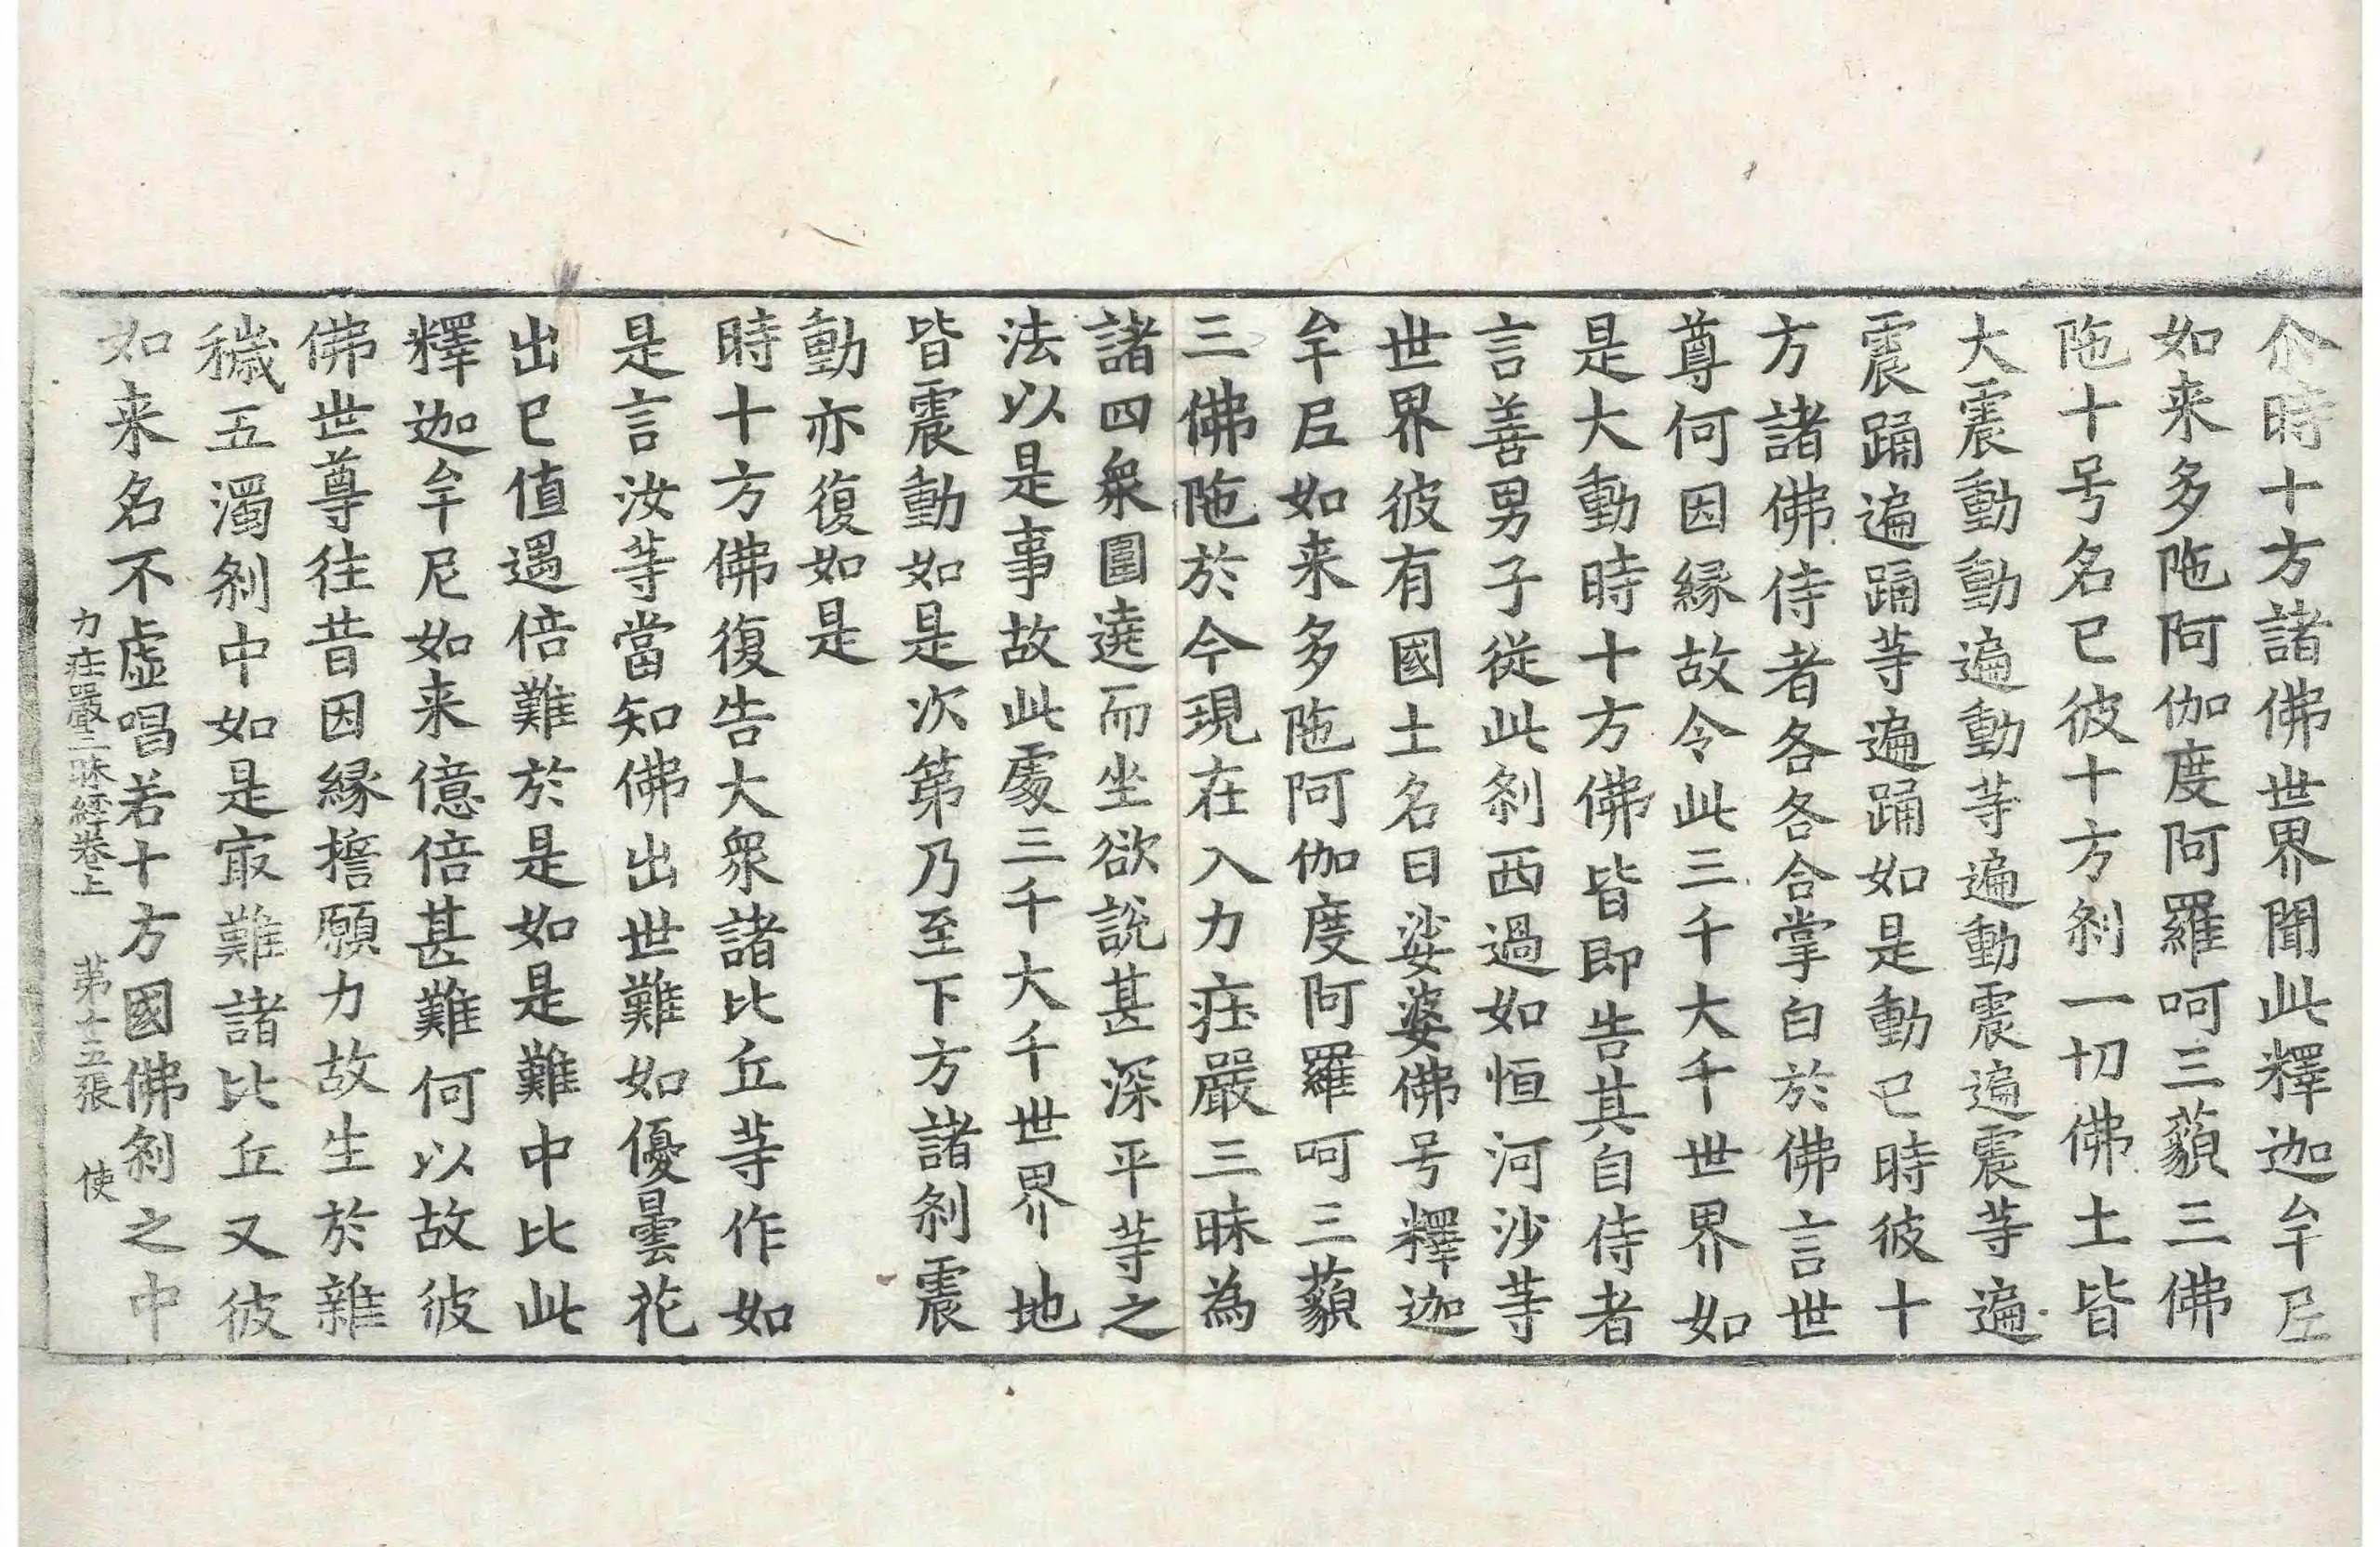 尒時十方諸佛世界聞此釋迦牟𡰱
如来多陁阿伽度阿羅呵三藐三佛
陁十号名已彼十方刹一切佛土皆
大震動動遍動等遍動震遍震等遍
震踊遍踊等遍踊如是動已時彼十
方諸佛侍者各各合掌白於佛言世
尊何因縁故令此三千大千世界如
是大動時十方佛皆即告其自侍者
言善男子從此刹西過如恒河沙等
世界彼有國土名曰娑婆佛号釋迦
牟𡰱如来多陁阿伽度阿羅呵三藐
三佛陁於今現在入力莊嚴三昧為
諸四衆圍遶而坐欲說甚深平等之
法以是事故此處三千大千世界地
皆震動如是次第乃至下方諸刹震
動亦復如是
時十方佛復告大衆諸比丘等作如
是言汝等當知佛出世難如優曇花
出已值遇倍難於是如是難中比此
釋迦牟尼如来億倍甚難何以故彼
佛世尊往昔因縁擔願力故生於雜
穢五濁刹中如是㝡難諸比丘又彼
如来名不虛唱若十方國佛刹之中
力莊嚴三昧經卷上 第十五張 使